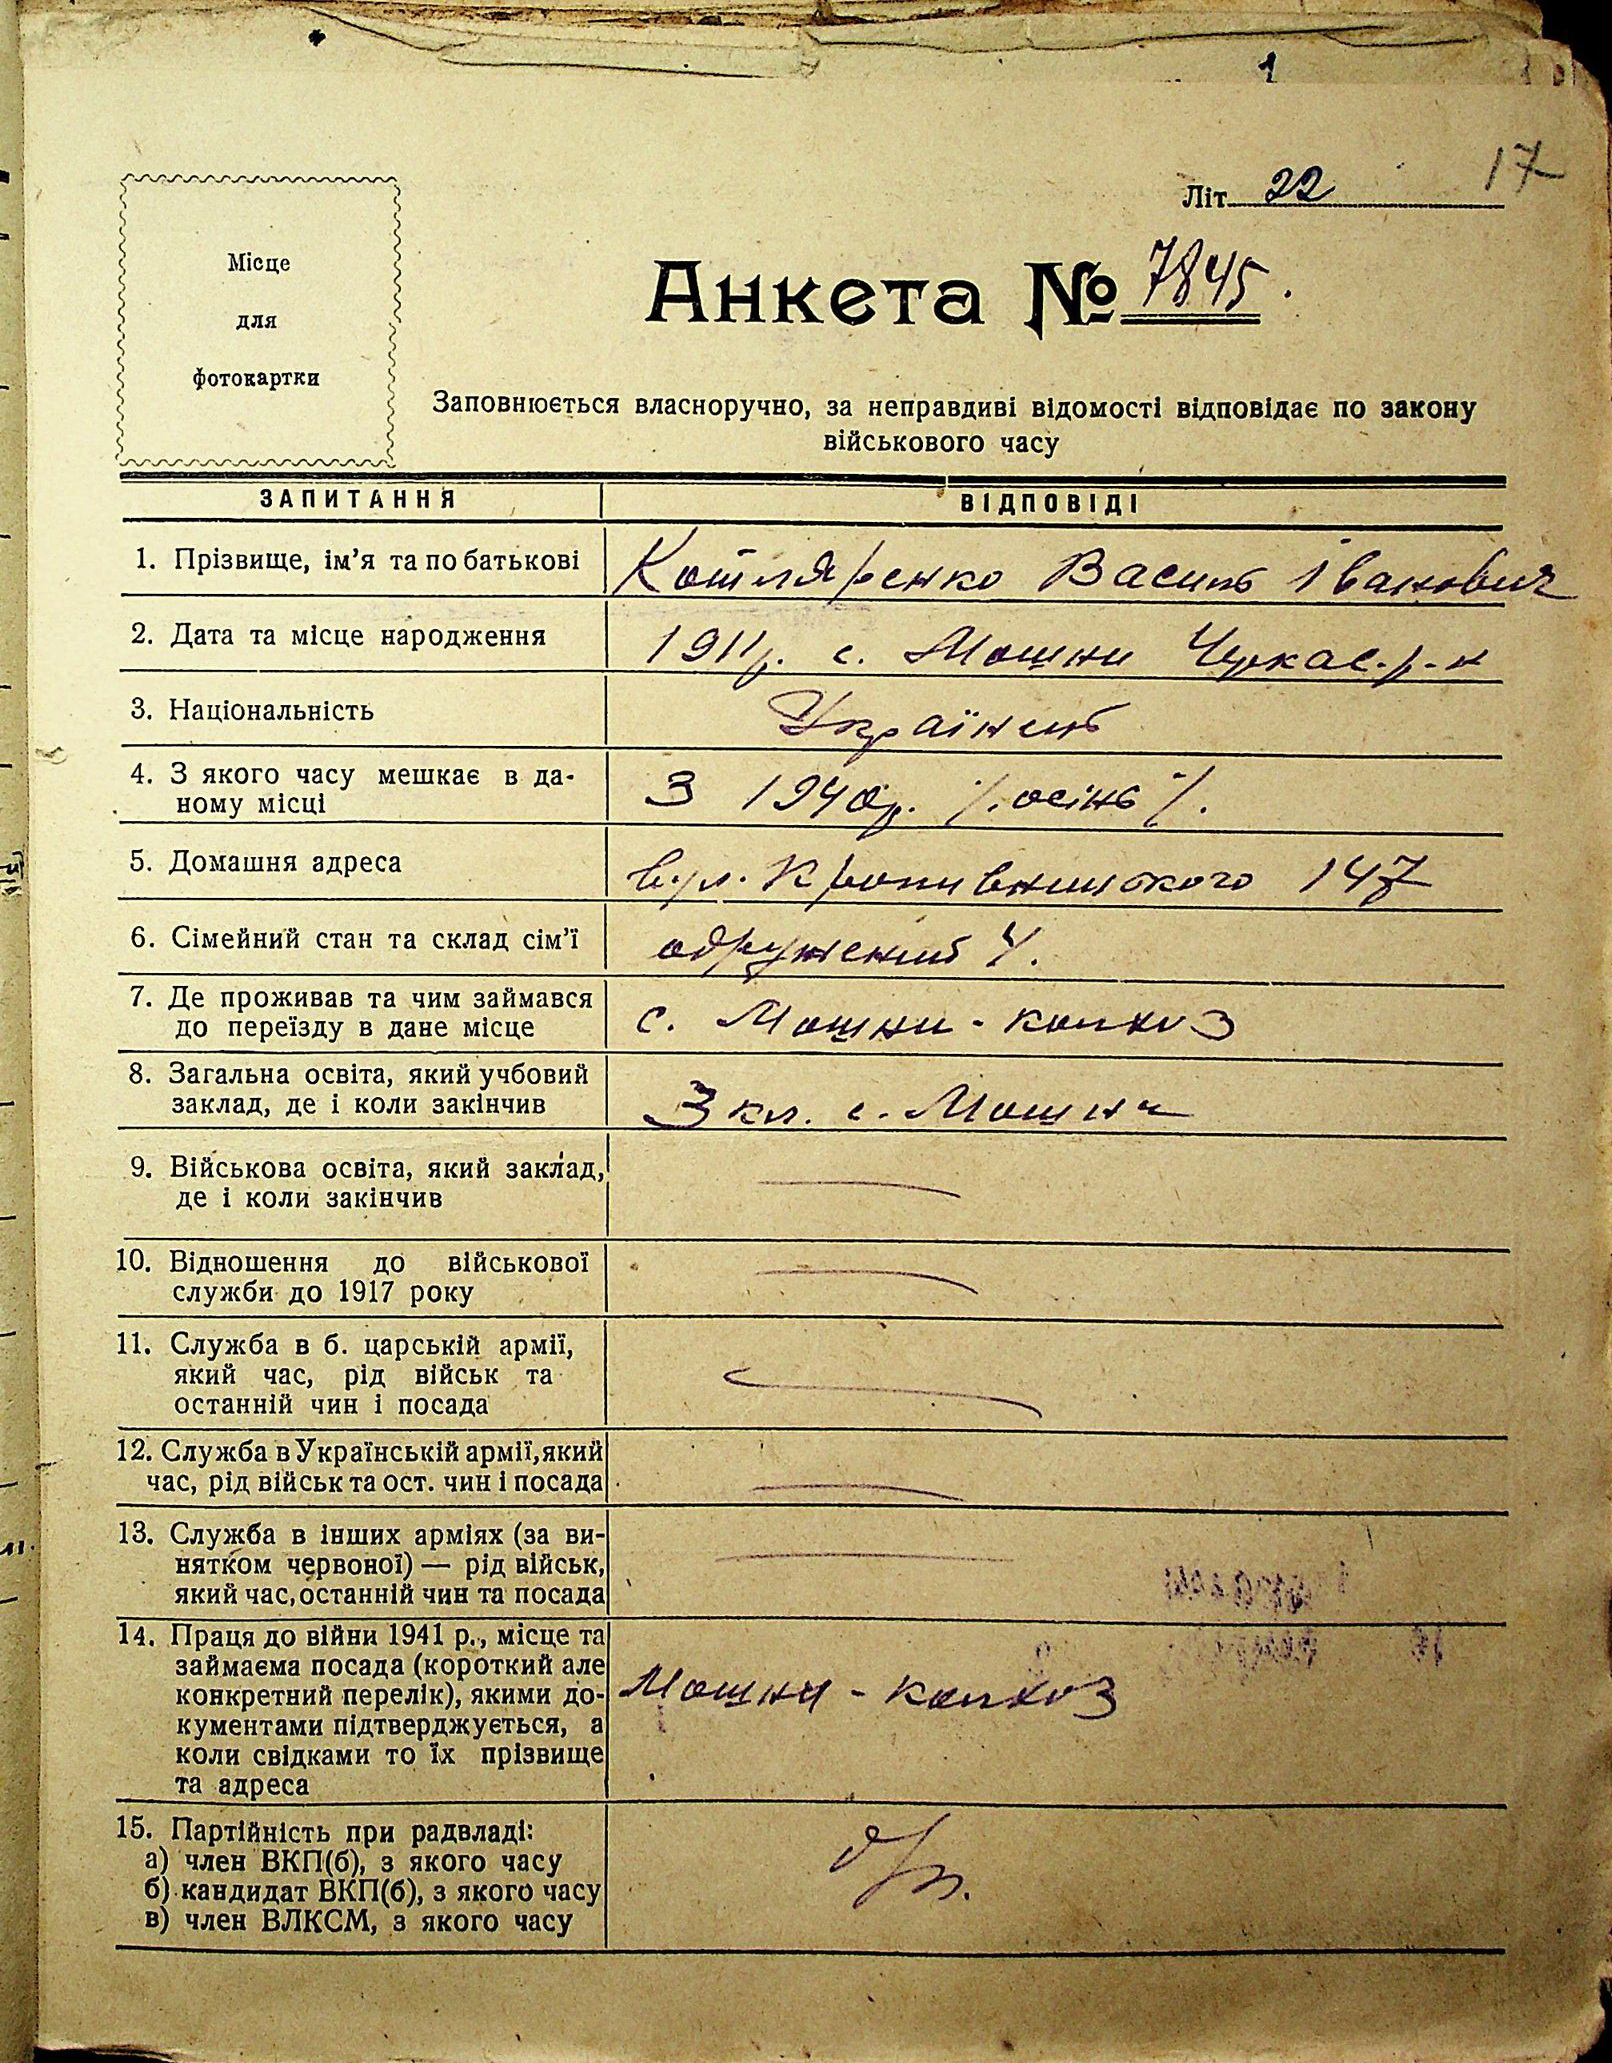 1
17
Літ. 22
Місце
для
фотокартки
Анкета № 7845.
Заповнюється власноручно, за неправдиві відомості відповідає по закону
військового часу
ЗАПИТАННЯ ВІДПОВІДІ
1. Прізвище, ім'я та по батькові Котляренко Василь Іванович
2. Дата та місце народження 1911р. с. Мошни Черкас. р-н
3. Національність Українець
4. З якого часу мешкає в да-
ному місці З 1940р. /. осінь /.
5. Домашня адреса вул. Кропивницького 147
6. Сімейний стан та склад сім'ї одружений 4.
7. Де проживав та чим займався
до переїзду в дане місце с. Мошни - колхоз
8. Загальна освіта, який учбовий
заклад, де і коли закінчив 3 кл. с. Мошни
9. Військова освіта, який заклад,
де і коли закінчив —
10. Відношення до військової
служби до 1917 року —
11. Служба в б. царській армії,
який час, рід військ та
останній чин і посада —
12. Служба в Українській армії, який
час, рід військ та ост. чин і посада —
13. Служба в інших арміях (за ви-
нятком червоної) — рід військ,
який час, останній чин та посада —
14. Праця до війни 1941 р., місце та
займаєма посада (короткий але
конкретний перелік), якими до-
кументами підтверджується, а
коли свідками то їх прізвище
та адреса
Мошни - колхоз
15. Партійність при радвладі:
а) член ВКП(б), з якого часу
б) кандидат ВКП(б), з якого часу
в) член ВЛКСМ, з якого часу
б/п.